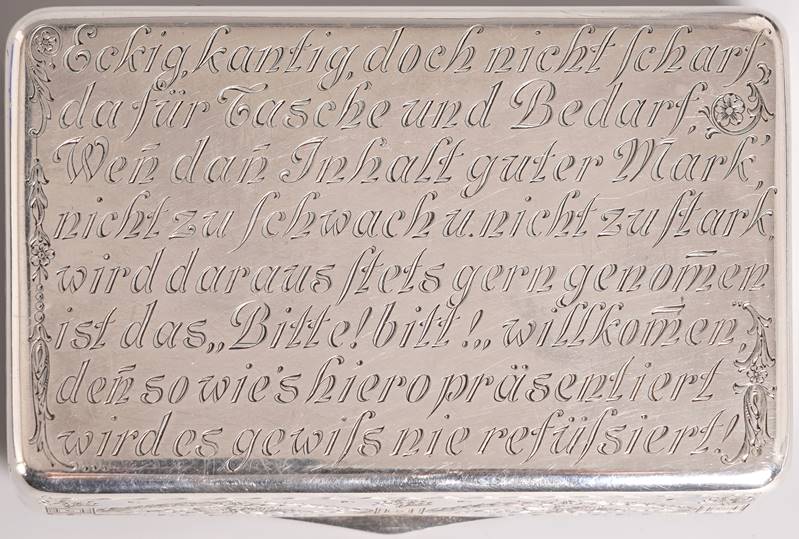 Eckig, kantig, doch nicht ſcharf,
da für Taſche und Bedarf,
Wen̄ dan̄ Inhalt guter Mark',
nicht zu ſchwach u. nicht zu ſtark,
wird daraus ſtets gern genom̄en
ist das „Bitte! bitt!„ willkom̄en,
den̄ so wie's hier o präsentiert
wird es gewiſs nie refüſsiert!